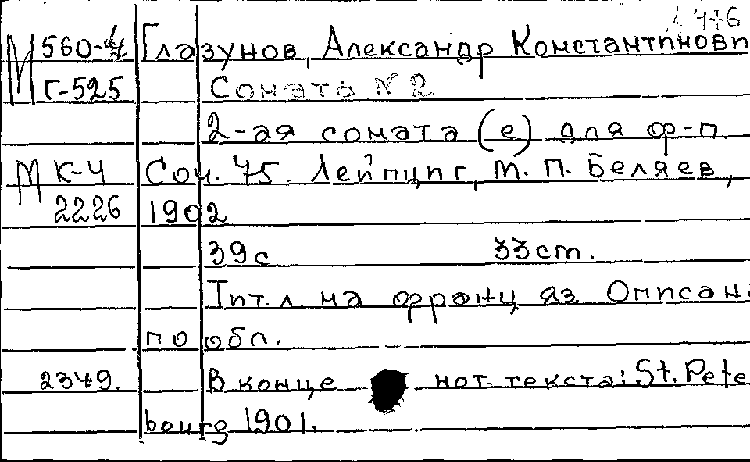 М 560-4 Глазунов, Александр Константинови
Г-525 Соната N 2
2-ая соната (е) для ф-п
М К-4 Соч. 75. Лейпциг, М. П. Беляев,
2226 1902
39с 33cm.
Тит. л на франц яз Описан
по обл.
2349. В конце нот текста: St. Pete
bourg 1901.